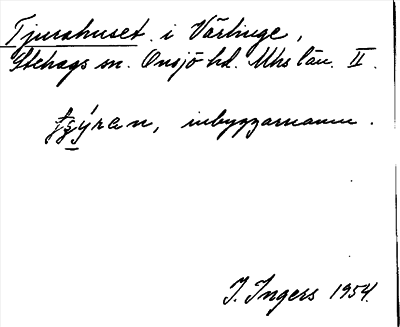 Tjurahuset i Västinge,
Stehags sn. Onsjö hd. Mhs län. II.
ýran, inbyggarnamn.
I. Ingers 1954.